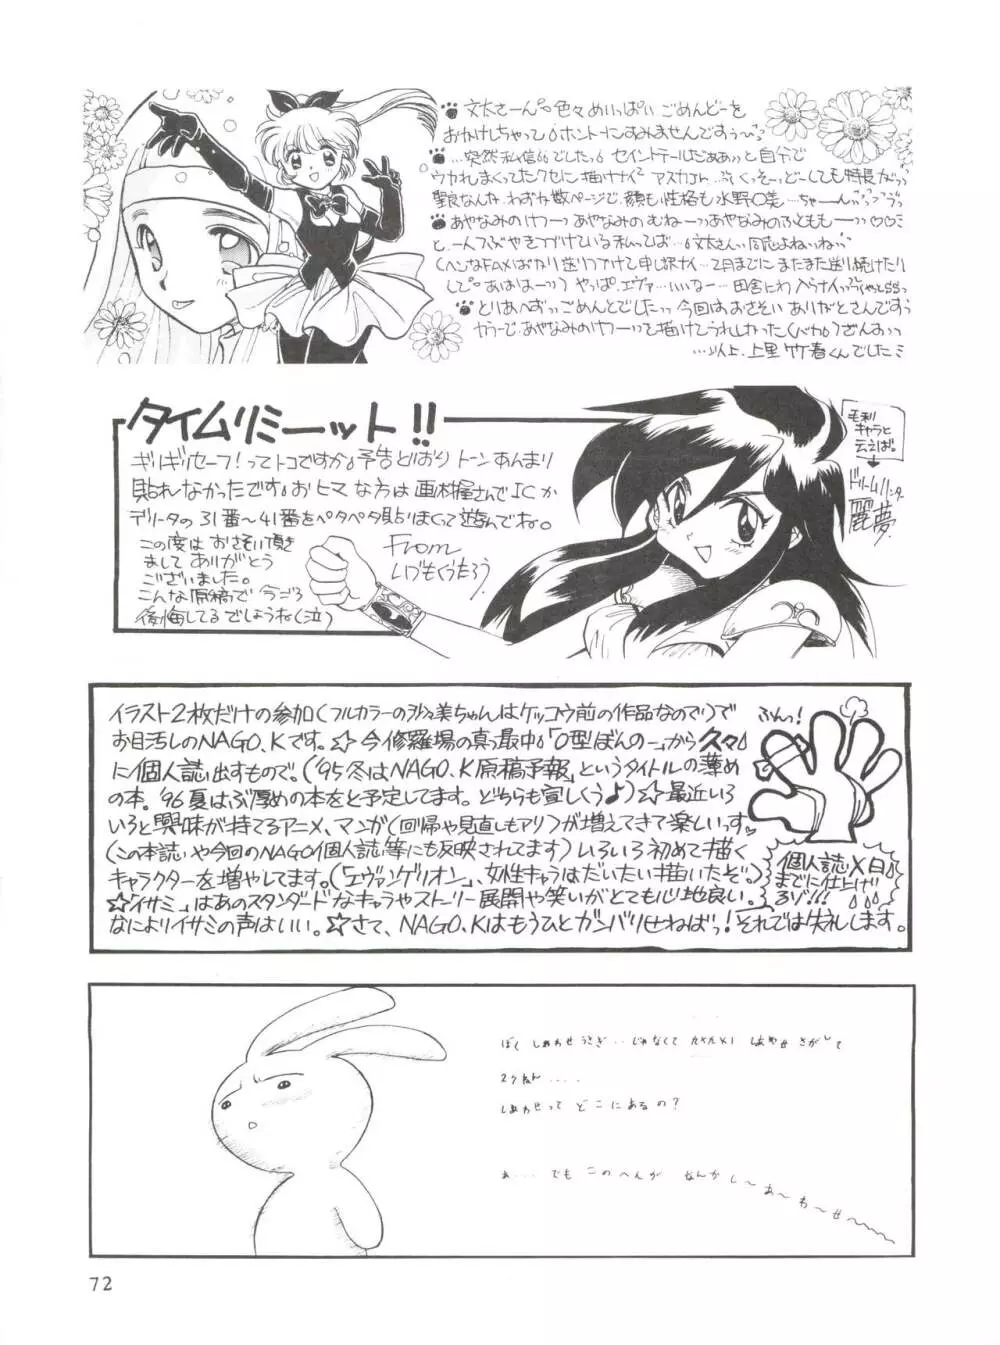 文太さーん 色々めいっぱい ごめんどーを
おかけしちゃって ホントーにすみませんですぅ〜
…突然私信 でしたっ セイントテールだぁぁっと自分で
ウカれまくってたクセに 描けナイ アスカJr.…くっそーっどーしても特長がっ
聖良なんか わずか数ページで、顔も性格も水野○美…ちゃーんっ
あやなみの あやなみの むねーっあやなみのふとももーっ♡♡
と、一人つぶやきつづけている私ってば… 文太さんっ同志よねっねっ
(ヘンなFAXばかり送りつけて申し訳ナイ…2月までにまたまた送り続けたり
して あはははーっ) やっぱ、エヴァ…いいなー…田舎にわ
とりあへずっごめんとでしたっっ 今回は おさそい ありがとさんですぅ
描けてうれしかった
…以上、上里竹春くんでした
タイムリミーット!!
ギリギリセーフ!ってトコですか 予告どおり トーンあんまり
貼れなかったです おヒマな方は画材屋さんでICか
デリータの31番〜41番をペタペタ貼りまくって遊んでね。
この度は おさそい頂き
まして ありがとう
ございました。
こんな原稿で 今ごろ
後悔してるでしょうね(泣)
From
いづもくうたろう
毛利
キャラと
云えば。
ドリームハンター
麗夢
イラスト2枚だけの参加(フルカラーの 美ちゃんはケッコウ前の作品なので)で
お目汚しのNAGO.Kです。☆今修羅場の真っ最中 「O型ぼんのー」から久々
に個人誌出すもので。(「'95冬はNAGO.K原稿予報」というタイトルの薄め
の本。'96夏はぶ厚めの本をと予定してます。どちらも宜しくぅ♪)☆最近いろ
いろと興味が持てるアニメ、マンガ(回帰や見直しもアリ)が増えてきて楽しいっす♡
(この本誌や今回のNAGO個人誌等にも反映されてます)いろいろ初めて描く
キャラクターを増やしてます。(「エヴァンゲリオン」、女性キャラはだいたい描いたぞ。)
☆「イサミ」はあのスタンダードなキャラやストーリー展開や笑いがとても心地良い。
なによりイサミの声はいい。☆さて、NAGO.Kはもうひとガンバリせねばっ!それでは失礼します。
ふんっ!
個人誌〆日
までに仕上げ
るゾ!!!
ぼく しあわせうさぎ‥じゃなくて しあわせ さがして
27ねん‥‥
しあわせって どこにあるの?
あ‥‥ でも このへんが なんか し〜あ〜わ〜せ〜
72